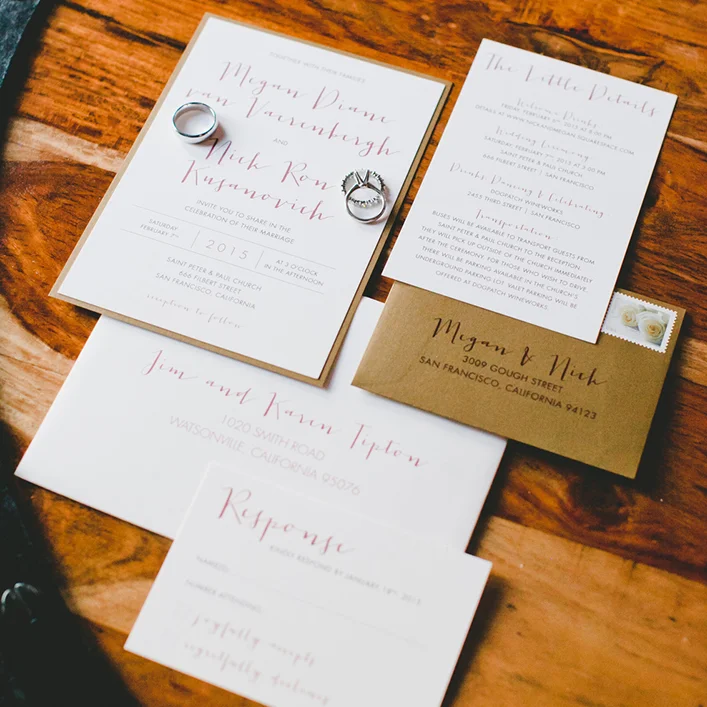 TOGETHER WITH THEIR FAMILIES
Megan Diane
van Vaerenbergh
AND
Nick Ron
Kusanovich
INVITE YOU TO SHARE IN THE
CELEBRATION OF THEIR MARRIAGE
SATURDAY
FEBRUARY
2015
O'CLOCK
IN THE AFTERNOON
SAINT PETER & PAUL CHURCH
666 FILBERT STREET
SAN FRANCISCO, CALIFORNIA
reception to follow
The Little Details
Welcome Drinks
FRIDAY, FEBRUARY
DETAILS AT WWW.NICKANDMEGAN.SQUARESPACE.COM
Wedding Ceremony
SATURDAY, FEBRUARY
SAINT PETER & PAUL CHURCH
666 FILBERT STREET | SAN FRANCISCO
Drinks, Dancing & Celebrating
DOGPATCH WINEWORKS
THIRD STREET | SAN FRANCISCO
Transportation
BUSES WILL BE AVAILABLE TO TRANSPORT GUESTS FROM
SAINT PETER & PAUL CHURCH TO THE RECEPTION
THEY WILL PICK UP OUTSIDE OF THE CHURCH IMMEDIATELY
AFTER THE CEREMONY. FOR THOSE WHO WISH TO DRIVE
THERE WILL BE PARKING AVAILABLE IN THE CHURCH'S
UNDERGROUND PARKING LOT. VALET PARKING WILL BE
OFFERED AT DOGPATCH WINEWORKS.
Megan & Nick
3009 GOUGH STREET
SAN FRANCISCO, CALIFORNIA 94123
Jim and Karen Tipton
1020 SMITH ROAD
WATSONVILLE, CALIFORNIA 95076
Response
KINDLY RESPOND BY JANUARY
NAME(S)
NUMBER ATTENDING
joyfully accepts
regretfully declines